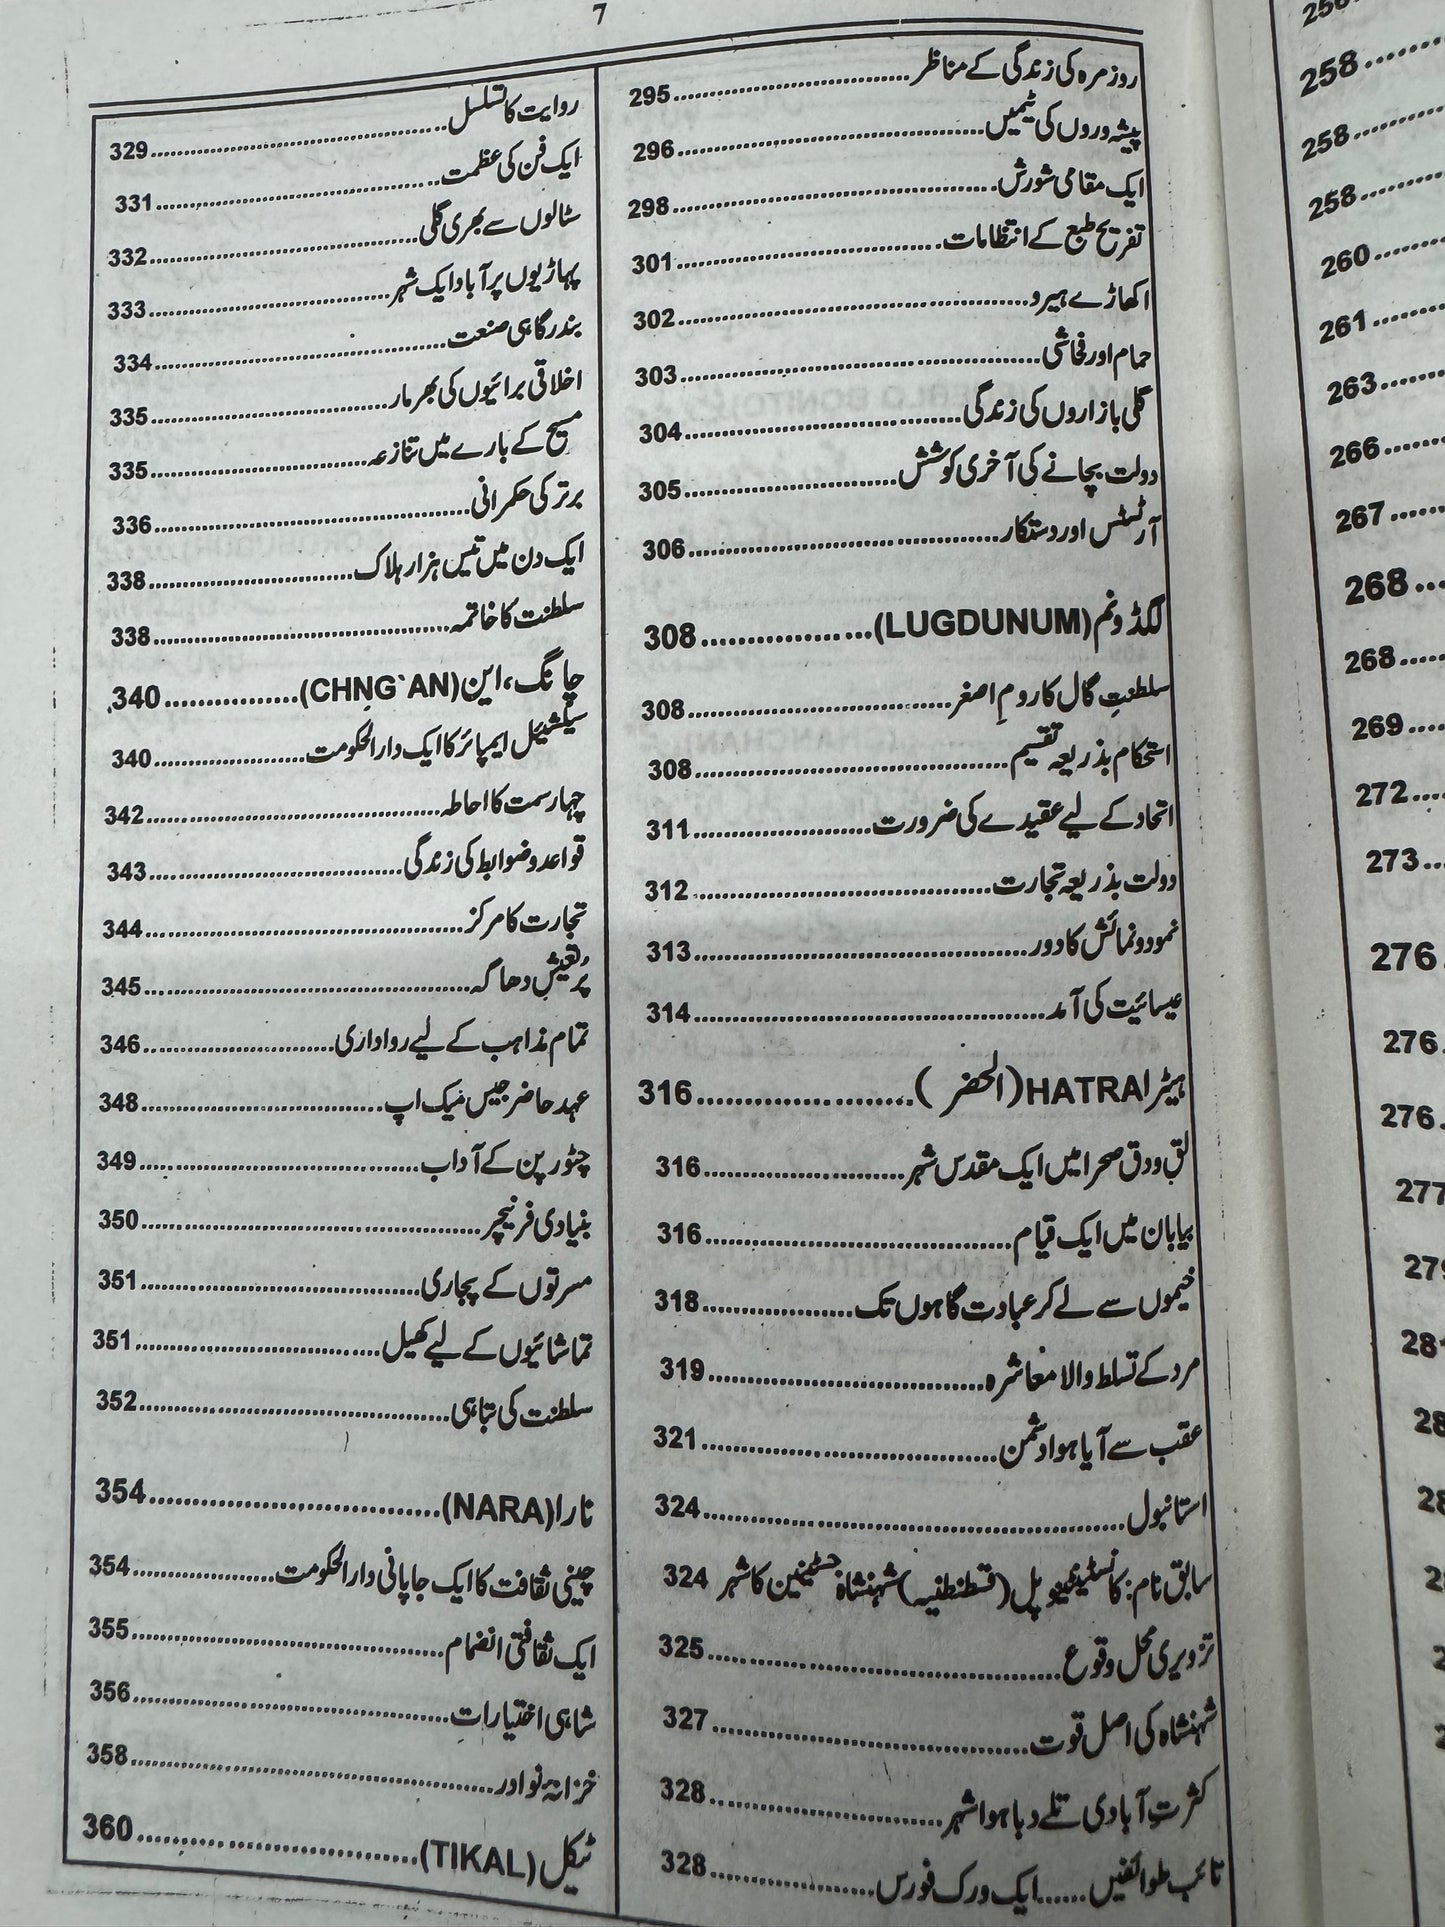 7
روزمرہ کی زندگی کے مناظر......295
پیشہ وروں کی ٹیمیں......296
ایک مقامی شورش......298
تفریح طبع کے انتظامات......301
اکھاڑے ہیرو......302
حمام اور فحاشی......303
گلی بازاروں کی زندگی......304
دولت بچانے کی آخری کوشش......305
آرٹسٹس اور دستکار......306
لگڈونم (LUGDUNUM)......308
سلطنتِ گال کا رومِ اصغر......308
استحکام بذریعہ تقسیم......308
اتحاد کے لیے عقیدے کی ضرورت......311
دولت بذریعہ تجارت......312
نمود و نمائش کا دور......313
عیسائیت کی آمد......314
ہیٹرا HATRA (الحضر)......316
لق و دق صحرا میں ایک مقدس شہر......316
بیابان میں ایک قیام......316
خیموں سے لے کر عبادت گاہوں تک......318
مرد کے تسلط والا معاشرہ......319
عقب سے آیا ہوا دشمن......321
استانبول......324
سابق نام: (قسطنطنیہ) شہنشاہ جسٹینین کا شہر 324
تزویری محل وقوع......325
شہنشاہ کی اصل قوت......327
کثرتِ آبادی تلے دبا ہوا شہر......328
تائب طوائفیں......ایک ورک فورس......328
روایت کا تسلسل......329
ایک فن کی عظمت......331
سٹالوں سے بھری گلی......332
پہاڑیوں پر آباد ایک شہر......333
بندرگاہی صنعت......334
اخلاقی برائیوں کی بھرمار......335
مسیح کے بارے میں تنازعہ......335
برتر کی حکمرانی......336
ایک دن میں تیس ہزار ہلاک......338
سلطنت کا خاتمہ......338
چانگ، این (CHNG`AN)......340
سیلیشیئل ایمپائر کا ایک دارالحکومت......340
چہار سمت کا احاطہ......342
قواعد و ضوابط کی زندگی......343
تجارت کا مرکز......344
پُر تعیش دھاگہ......345
تمام مذاہب کے لیے رواداری......346
عہد حاضر جیس میک اپ......348
چٹور پن کے آداب......349
بنیادی فرنیچر......350
مسرتوں کے پجاری......351
تماشائیوں کے لیے کھیل......351
سلطنت کی تباہی......352
نارا (NARA)......354
چینی ثقافت کا ایک جاپانی دارالحکومت......354
ایک ثقافتی انضمام......355
شاہی اختیارات......356
خزانۂ نوادر......358
ٹیکل (TIKAL)......360
258
258
258
260
261
263
266
267
268
268
269
272
273
276
276
276
277